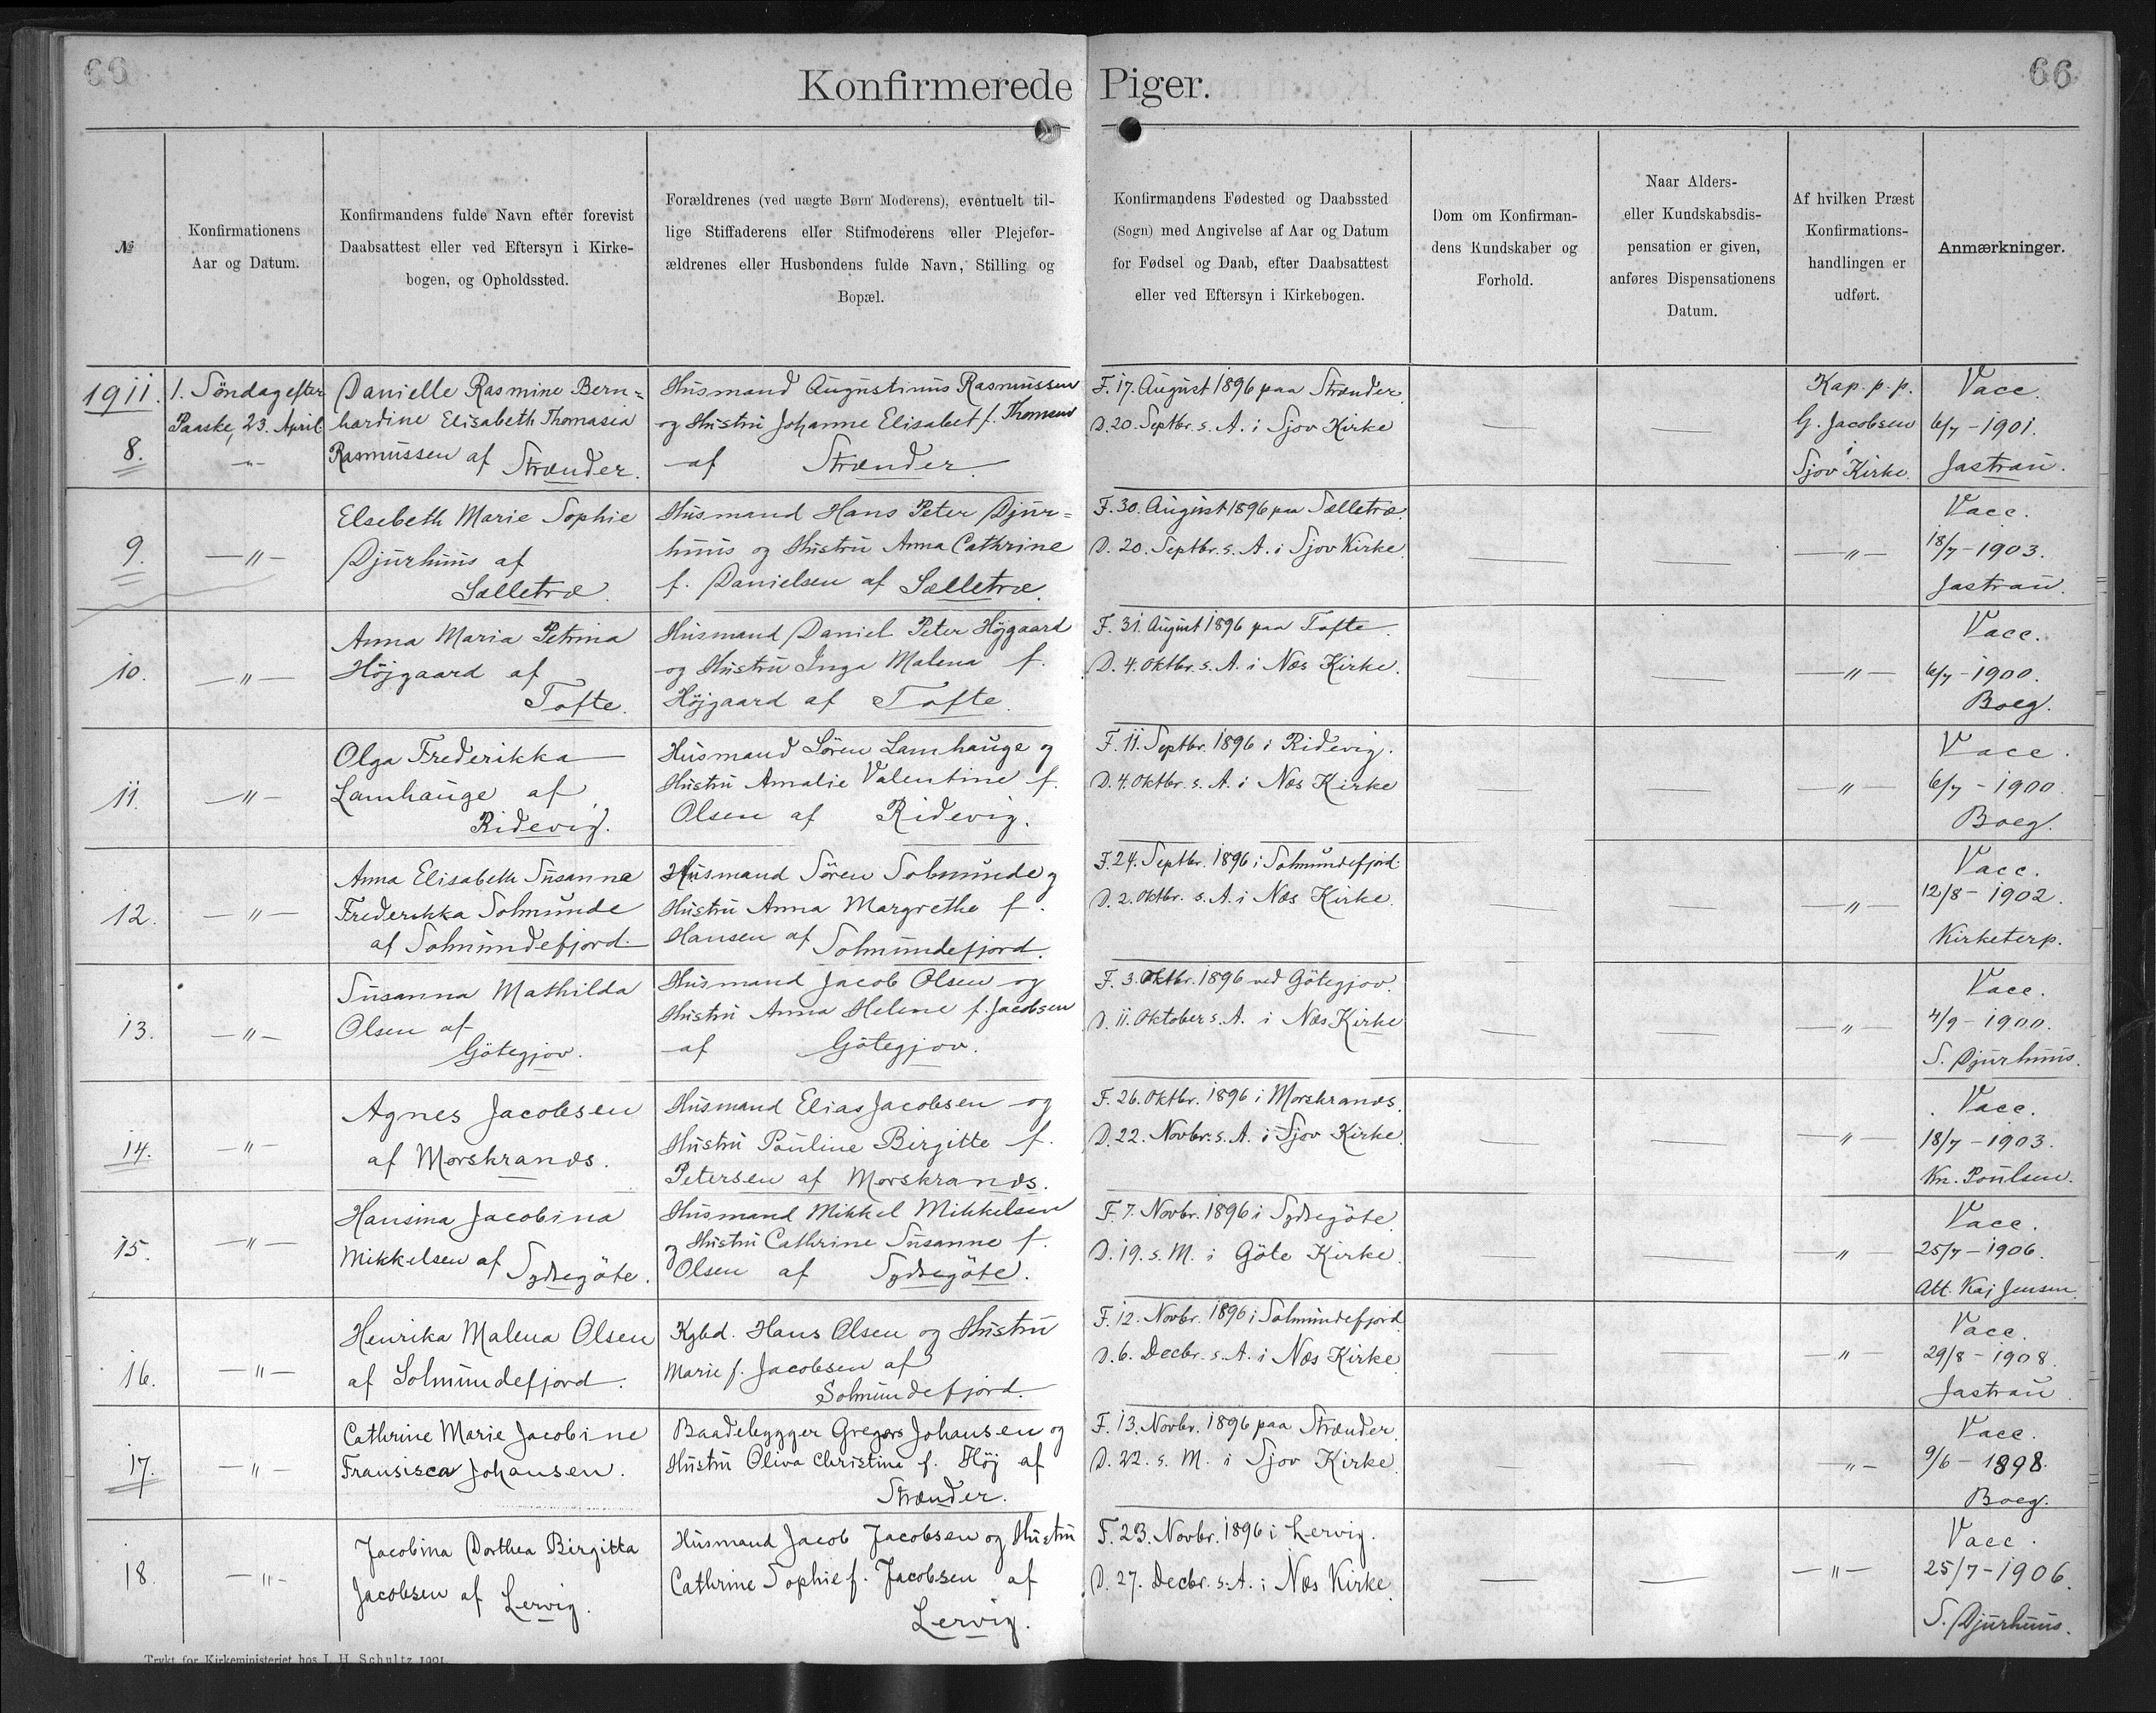 66
66
Konfirmerede Piger.
№
Konfirmationens
Aar og Datum.
Konfirmandens fulde Navn efter forevist
Daabsattest eller ved Eftersyn i Kirke-
bogen, og Opholdssted.
Forældrenes (ved uægte Børn Moderens), eventuelt til-
lige Stiffaderens eller Stifmoderens eller Plejefor-
ældrenes eller Husbondens fulde Navn, Stilling og
Bopæl.
Konfirmandens Fødested og Daabssted
(Sogn) med Angivelse af Aar og Datum
for Fødsel og Daab, efter Daabsattest
eller ved Eftersyn i Kirkebogen.
Dom om Konfirman-
dens Kundskaber og
Forhold.
Naar Alders-
eller Kundskabsdis-
pensation er given,
anføres Dispensationens
Datum.
Af hvilken Præst
Konfirmations-
handlingen er
udført.
Anmærkninger.
1911.
8.
1. Søndag efter
Paaske, 23. April
-"-
Danielle Rasmine Bern=
hardine Elisabeth Thomasia
Rasmussen af Strænder.
Husmand Augustinus Rasmussen
og Hustru Johanne Elisabet f. Thomsen
af Strænder
F. 17. August 1896 paa Strænder.
D. 20. Septbr. s. A. i Sjov Kirke
Kap. p. p.
G. Jacobsen
i
Sjov Kirke.
Vacc.
6/7 - 1901.
Jastrau.
9.
-"-
Elsebeth Marie Sophie
Djurhuus af
Sælletræ.
Husmand Hans Peter Djur=
huus og Hustru Anna Cathrine
f. Danielsen af Sælletræ.
F. 30. August 1896 paa Sælletræ.
D. 20. Septbr. s. A. i Sjov Kirke.
-"-
Vacc.
18/7 - 1903.
Jastrau.
10.
-"-
Anna Maria Petrina
Højgaard af
Tofte.
Husmand Daniel Peter Højgaard
og Hustru Inga Malena f.
Højgaard af Tofte.
F. 31. August 1896 paa Tofte.
D. 4. Oktbr. s. A. i Næs Kirke.
-"-
Vacc.
6/7 - 1900.
Boeg.
11.
-"-
Olga Frederikka
Lamhauge af
Ridevig.
Husmand Søren Lamhauge og
Hustru Amalie Valentine f.
Olsen af Ridevig.
F. 11. Septbr. 1896 i Ridevig.
D. 4. Oktbr. s. A. i Næs Kirke
-"-
Vacc.
6/7 - 1900.
Boeg.
12.
-"-
Anna Elisabeth Susanne
Frederikka Solmunde
af Solmundefjord.
Husmand Søren Solmunde og
Hustru Anna Margrethe f.
Hansen af Solmundefjord.
F. 24. Septbr. 1896 i Solmundefjord.
D. 2. Oktbr. s. A. i Næs Kirke.
-"-
Vacc.
12/8 - 1902.
Kirketerp.
13.
-"-
Susanna Mathilda
Olsen af
Götegjov.
Husmand Jacob Olsen og
Hustru Anna Helene f. Jacobsen
af Götegjov.
F. 3. Oktbr. 1896 ved Götegjov.
D. 11. Oktober s. A. i Næs Kirke
-"-
Vacc.
4/9 - 1900.
S. Djurhuus.
14.
-"-
Agnes Jacobsen
af Morskranes.
Husmand Elias Jacobsen og
Hustru Pauline Birgitte f.
Petersen af Morskranes.
F. 26. Oktbr. 1896 i Morskranes.
D. 22. Novbr. s. A. i Sjov Kirke.
-"-
Vacc.
18/7 - 1903.
Kn. Poulsen.
15.
-"-
Hansina Jacobina
Mikkelsen af Sydregöte.
Husmand Mikkel Mikkelsen
og Hustru Cathrine Susanne f.
Olsen af Sydregöte.
F. 7. Novbr. 1896 i Sydregöte.
D. 19. s. M. i Göte Kirke.
"
Vacc.
25/7 - 1906.
Att. Kaj Jensen.
16.
-"-
Henrika Malena Olsen
af Solmundefjord.
Kgbd. Hans Olsen og Hustru
Marie f. Jacobsen af
Solmundefjord.
F. 12. Novbr. 1896 i Solmundefjord
D. 6. Decbr. s. A. i Næs Kirke.
-"-
Vacc.
29/8 - 1908.
Jastrau.
17.
-"-
Cathrine Marie Jacobine
Fransisca Johansen.
Baadebygger Gregers Johansen og
Hustru Oliva Christine f. Høj af
Strænder.
F. 13. Novbr. 1896 paa Strænder.
D. 22. s. M. i Sjov Kirke.
-"-
Vacc.
9/6 - 1898.
Boeg.
18.
-"-
Jacobina Dorthea Birgitta
Jacobsen af Lervig.
Husmand Jacob Jacobsen og Hustru
Cathrine Sophie f. Jacobsen af
Lervig.
F. 23. Novbr. 1896 i Lervig.
D. 27. Decbr. s. A. i Næs Kirke.
-"-
Vacc.
25/7 - 1906.
S. Djurhuus.
Trykt for Kirkeministeriet hos J. H. Schultz 1901